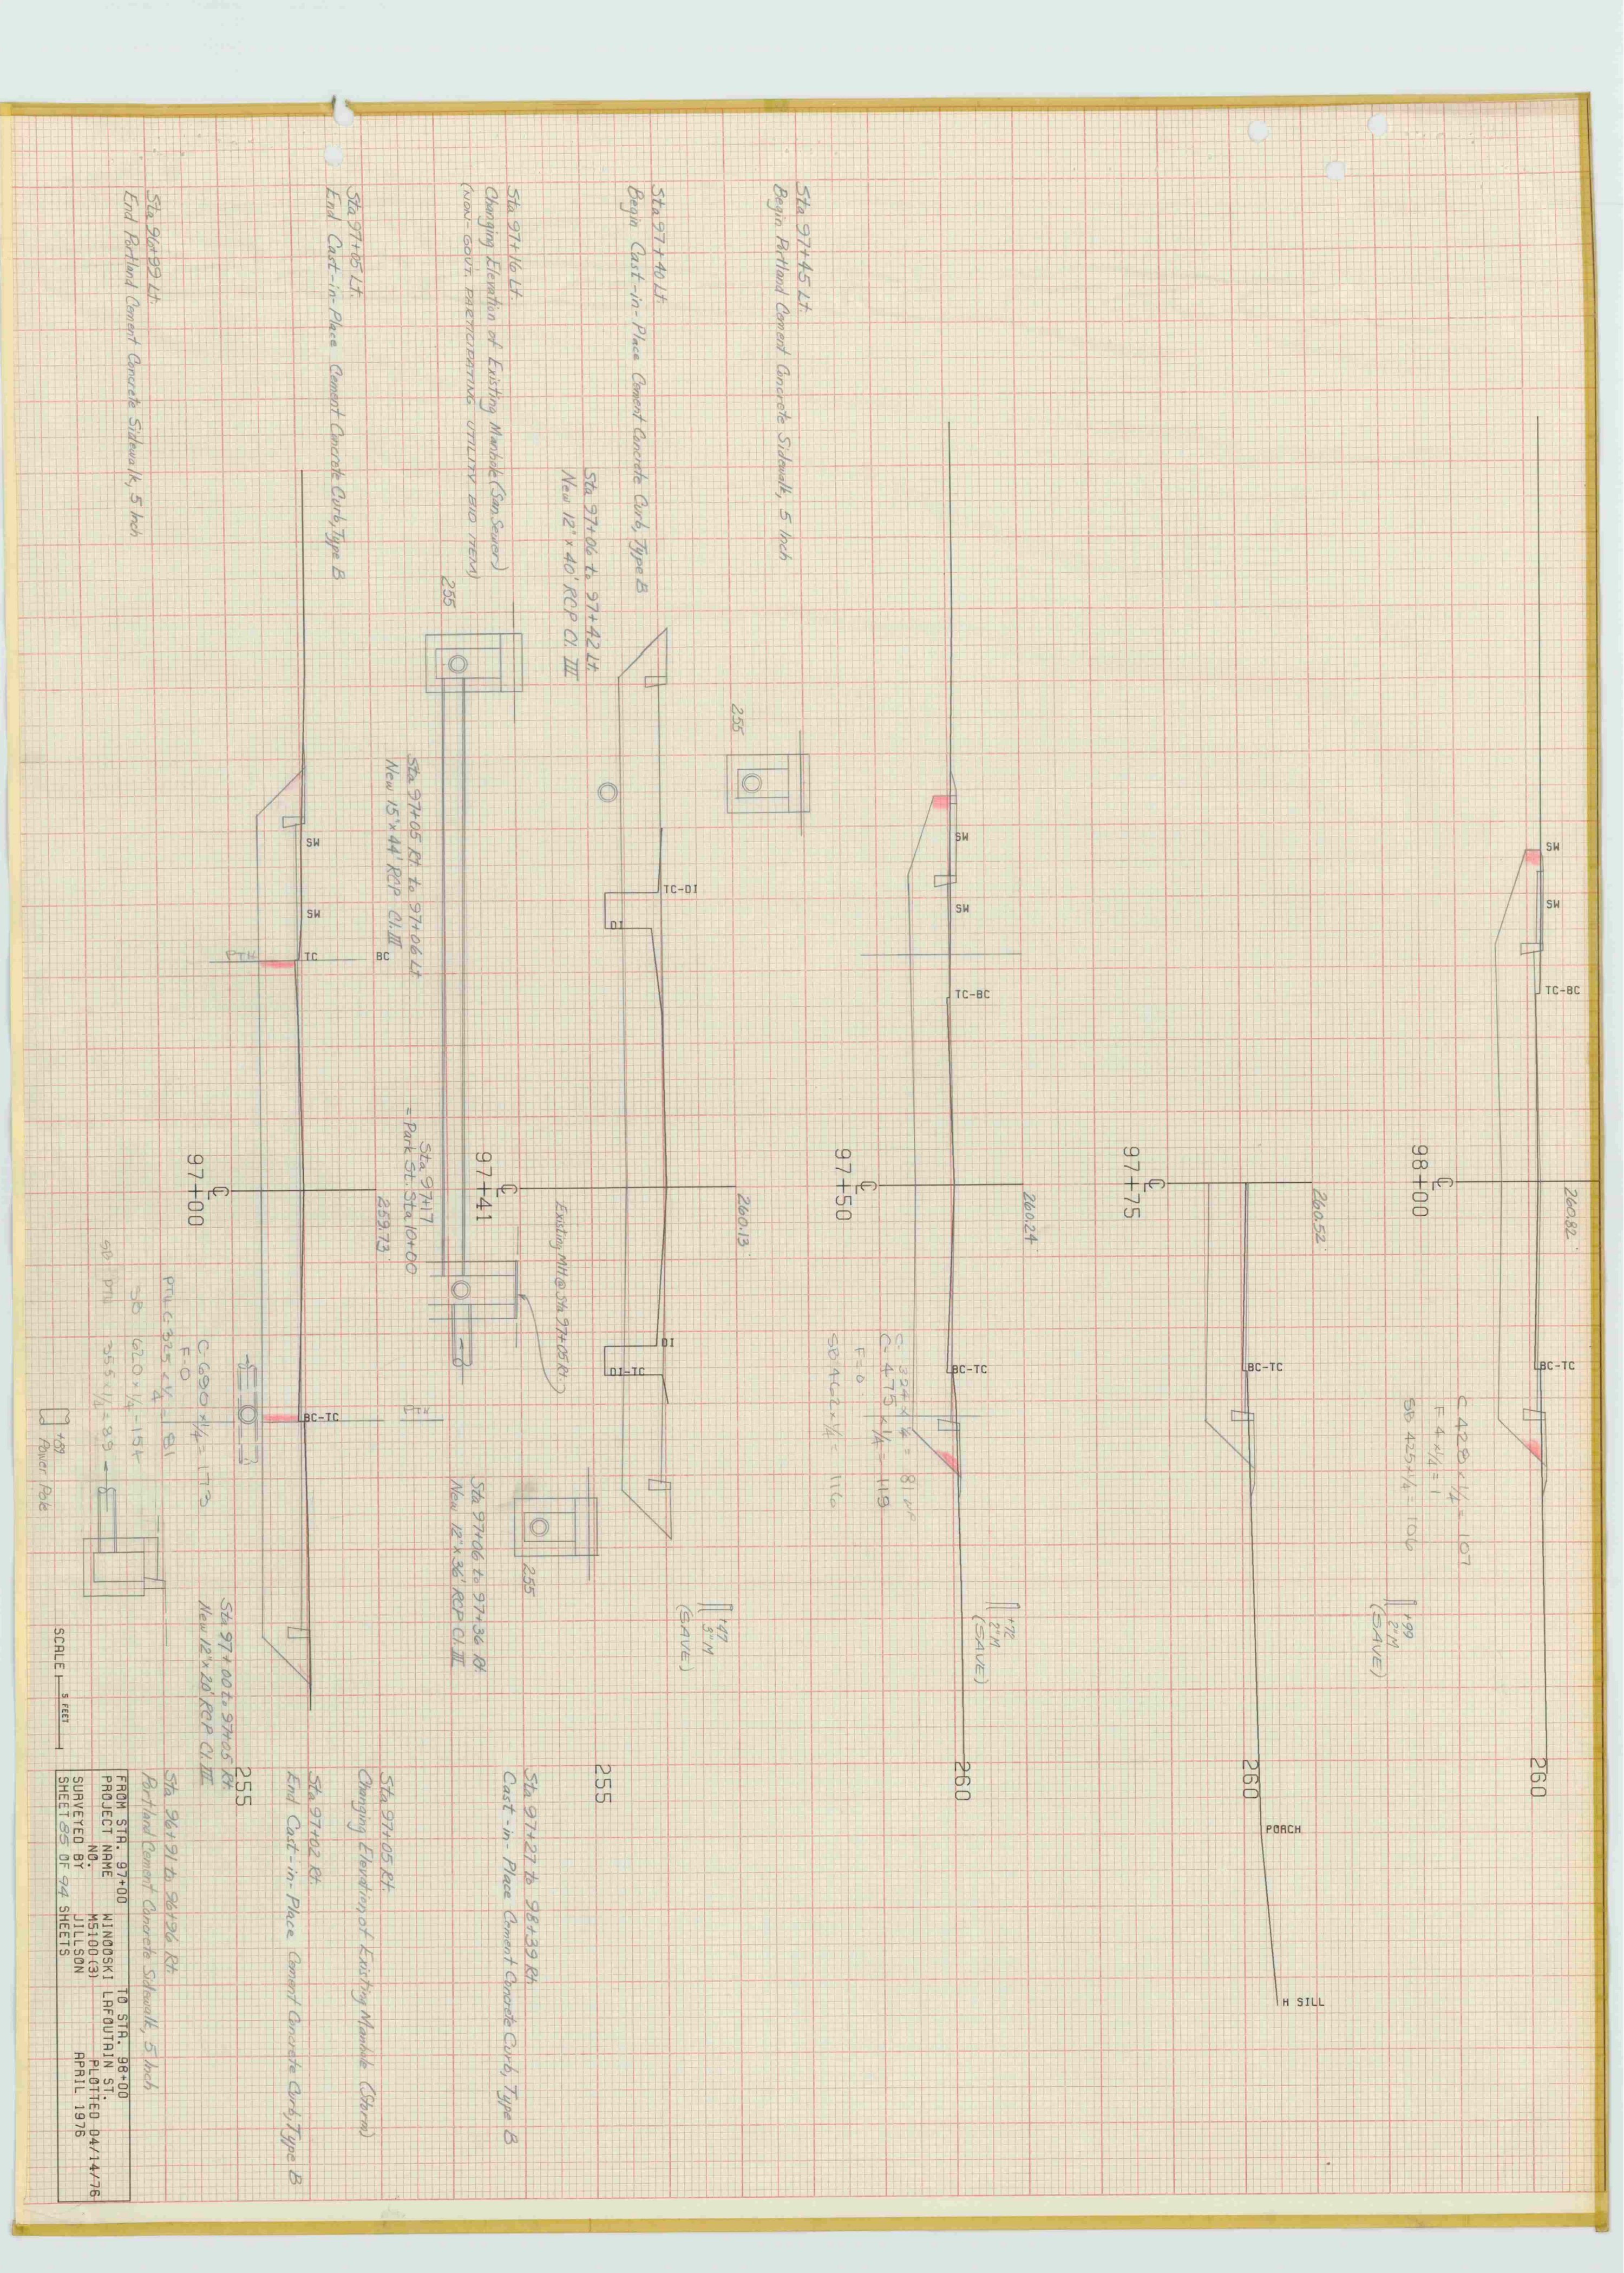 Sta 97+45 Lt.
Begin Portland Cement Concrete Sidewalk, 5 Inch
Sta 97+40 Lt.
Begin Cast-in-Place Cement Concrete Curb, Type B
Sta 97+16 Lt.
Changing Elevation of Existing Manhole (San. Sewer)
(NON-GOVT. PARTICIPATING UTILITY BID ITEM)
Sta 97+05 Lt.
End Cast-in-Place Cement Concrete Curb, Type B
Sta 96+99 Lt.
End Portland Cement Concrete Sidewalk, 5 Inch
Sta 97+06 to 97+42 Lt.
New 12" x 40' RCP Cl. III
255
255
Sta 97+05 Rt. to 97+06 Lt
New 15" x 44' RCP Cl. III
SW
SW
TC-BC
260.82
98+00
BC-TC
260
C 428 x 1/4 = 107
F 4 x 1/4 = 1
SB 425 x 1/4 = 106
+99
2" M
(SAVE)
260.52
97+75
BC-TC
260
PORCH
H SILL
SW
SW
TC-BC
260.24
97+50
BC-TC
260
C 475 x 1/4 = 119
F = 0
SB 462 x 1/4 = 116
+72
2" M
(SAVE)
TC-DI
DI
260.13
97+41
DI
DI-TC
255
Existing MH @ Sta 97+05 Rt.
+47
3" M
(SAVE)
255
Sta 97+06 to 97+36 Rt.
New 12" x 36' RCP Cl. III
Sta 97+17
= Park St. Sta 10+00
SW
SW
PTK
TC
BC
259.73
97+00
BC-TC
PTK
255
C 690 x 1/4 = 173
F-0
PTK C 325 x 1/4 = 81
SB 620 x 1/4 = 154
SB PTK 355 x 1/4 = 89
+89
Power Pole
Sta 97+00 to 97+05 Rt.
New 12" x 20' RCP Cl. III
Sta 97+27 to 98+39 Rt.
Cast-in-Place Cement Concrete Curb, Type B
Sta 97+05 Rt.
Changing Elevation of Existing Manhole (Storm)
Sta 97+02 Rt.
End Cast-in-Place Cement Concrete Curb, Type B
Sta 96+91 to 96+96 Rt.
Portland Cement Concrete Sidewalk, 5 Inch
SCALE 5 FEET
FROM STA. 97+00 TO STA. 98+00
PROJECT NAME WINOOSKI LAFOUTAIN ST.
NO. M5100(3) PLOTTED 04/14/76
SURVEYED BY JILLSON APRIL 1976
SHEET 85 OF 94 SHEETS